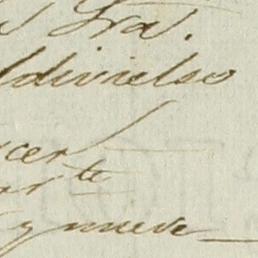 Sra.
ldivielso
cer
arte
y nueve